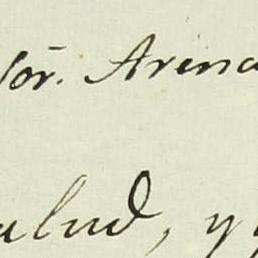 Sōr. Arena
alud, y